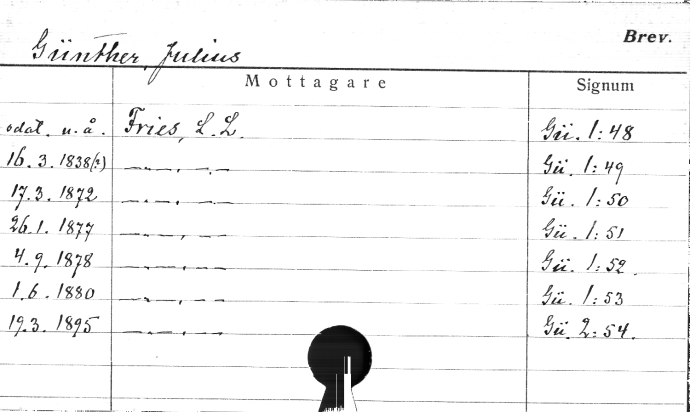 Brev.
Günther, Julius
Mottagare Signum
odat. u.å. Fries, L.L. Gü. 1:48
16.3.1838(?) — „ — , — „ — Gü. 1:49
17.3.1872 — „ — , — „ — Gü. 1:50
26.1.1877 — „ — , — „ — Gü. 1:51
4.9.1878 — „ — , — „ — Gü. 1:52.
1.6.1880 — „ — , — „ — Gü. 1:53
19.3.1895 — „ — , — „ — Gü. 2:54.